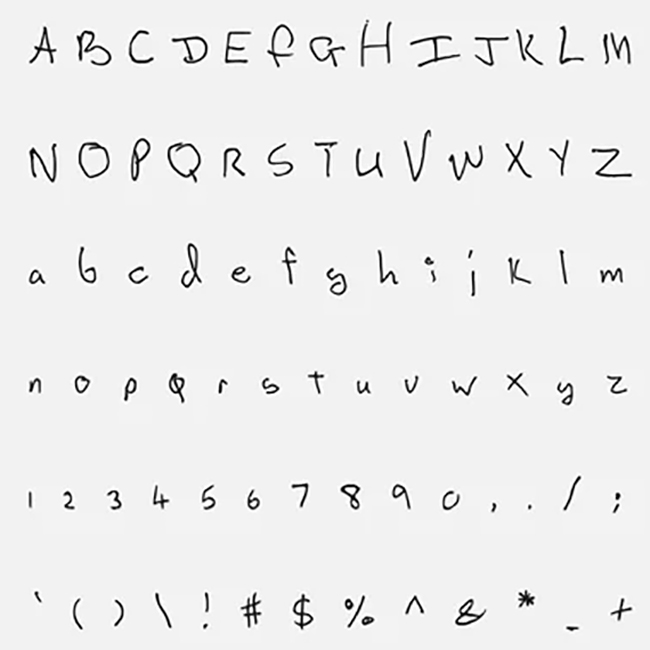 A B C D E f G H I J K L M
N O P Q R S T U V W X Y Z
a b c d e f g h i j k l m
n o p Q r s t u v w x y z
1 2 3 4 5 6 7 8 9 0 , . / ;
` ( ) \ ! # $ % ^ & * _ +